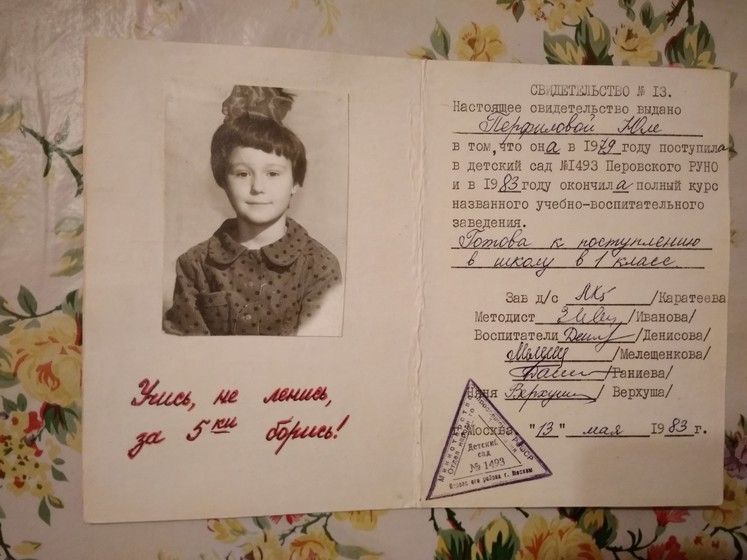 Учись, не ленись,
за 5ки борись!
СВИДЕТЕЛЬСТВО № 13.
Настоящее свидетельство выдано
Перфиловой Юле
в том, что она в 1979 году поступила
в детский сад №1493 Перовского РУНО
и в 1983 году окончила полный курс
названного учебно-воспитательного
заведения.
Готова к поступлению
в школу в 1 класс.
Зав д/с /Каратеева
Методист /Иванова/
Воспитатели /Денисова/
/Мелещенкова/
/Ганиева/
Няня Верхуша / Верхуша/
г.Москва "13" мая 1983 г.
Министерство РСФСР
Детский
сад
№ 1493
района г. Москвы